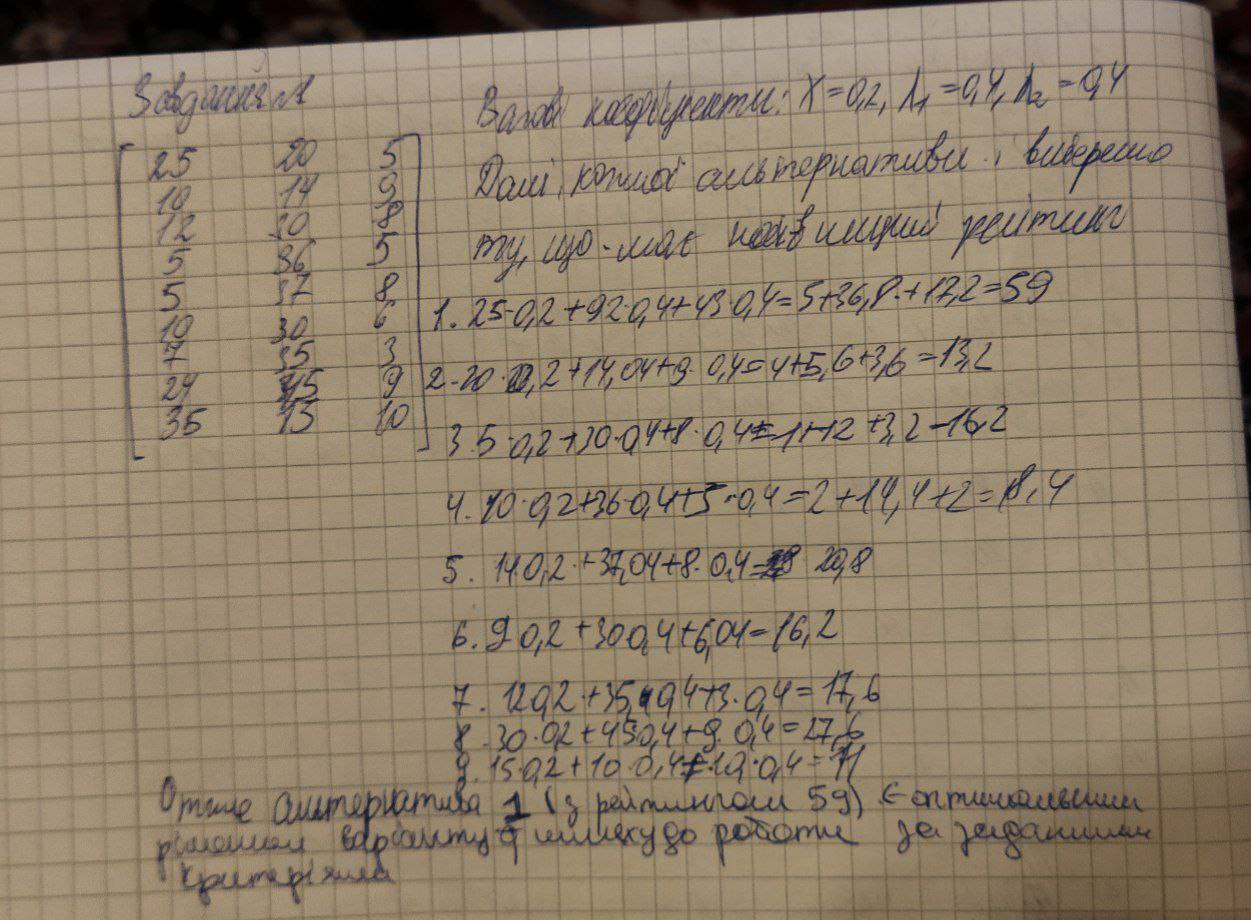 Завдання 1
25 20 5
10 14 9
12 30 8
5 36 5
5 37 8
10 30 6
7 35 3
24 45 9
35 13 10
Вагові коефіцієнти: X=0,2, λ₁=0,4, λ₂=0,4
Далі, кожної альтернативи і виберемо
ту, що має найвищий рейтинг
1. 25·0,2+92·0,4+43·0,4=5+36,8+17,2=59
2. 20·0,2+14,04+9·0,4=4+5,6+3,6=13,2
3. 5·0,2+30·0,4+8·0,4=1+12+3,2=16,2
4. 10·0,2+36·0,4+5·0,4=2+14,4+2=18,4
5. 14·0,2+37,04+8·0,4= 20,8
6. 9 0,2+30 0,4+6,04=16,2
7. 12 0,2+35,0,4+3·0,4=17,6
8. 30·0,2+45 0,4+9·0,4=27,6
9. 15·0,2+10·0,4+10·0,4=11
Отже альтернатива 1 (з рейтингом 59) є оптимальним
варіанту шляху до роботи за заданими
критеріями